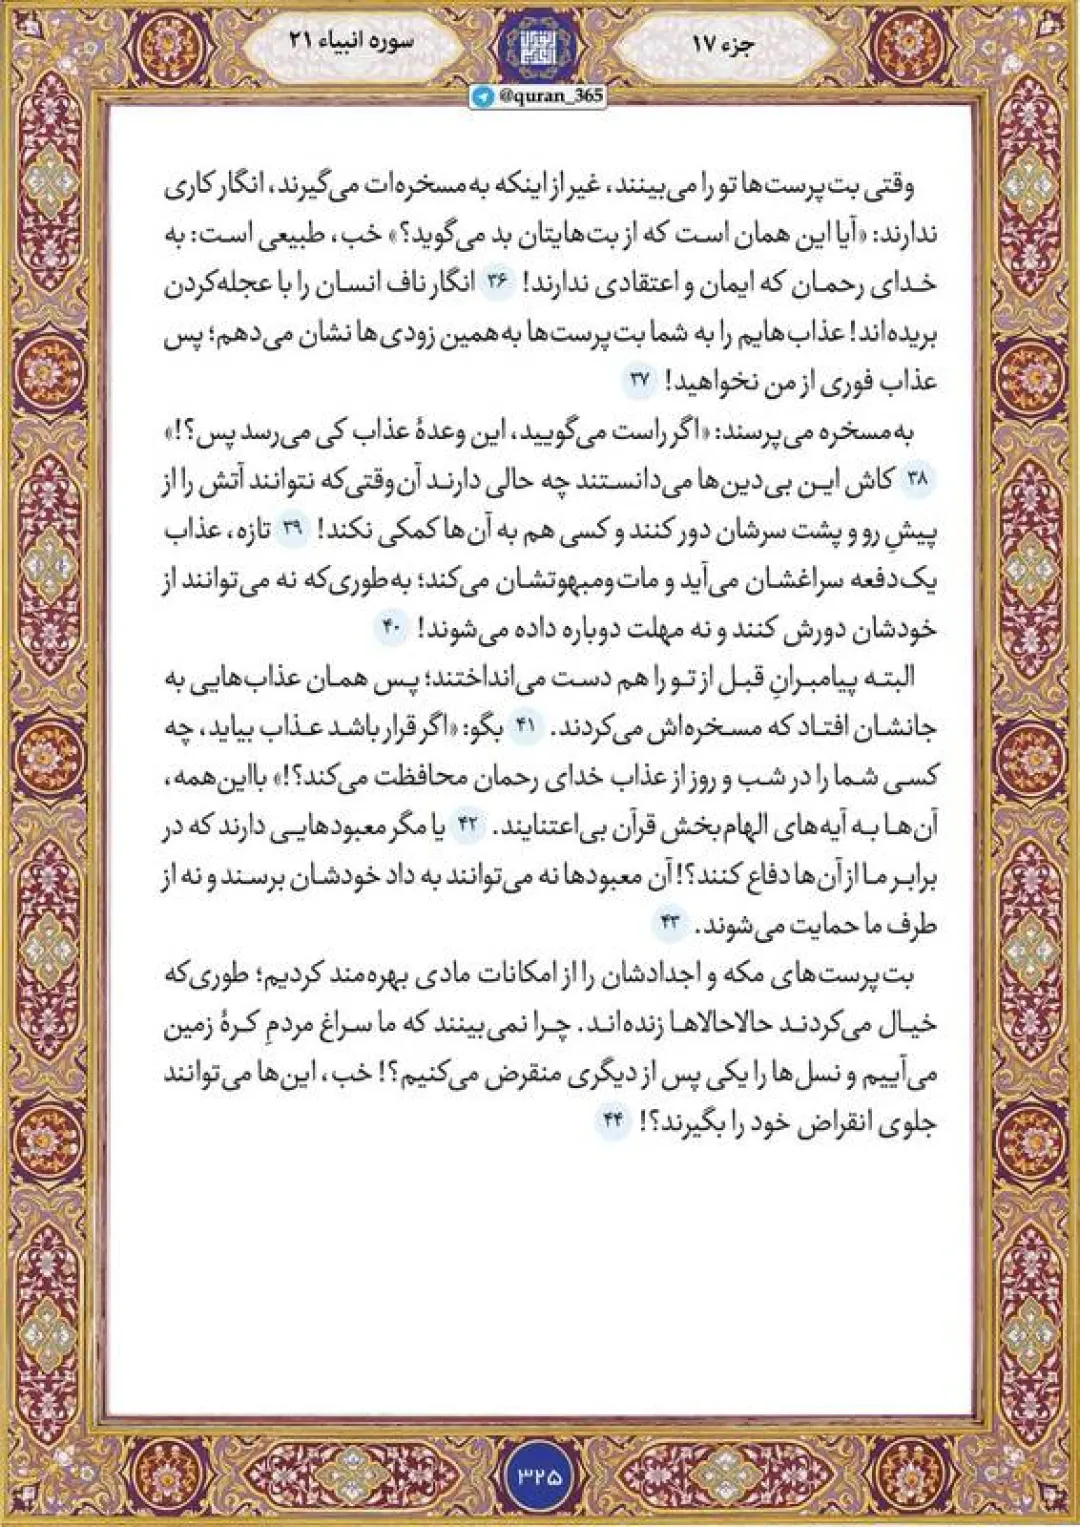 جزء ۱۷
سوره انبیاء ۲۱
@quran_365
وقتی بت‌پرست‌ها تو را می‌بینند، غیر از اینکه به مسخره‌ات می‌گیرند، انگار کاری
ندارند: «آیا این همان است که از بت‌هایتان بد می‌گوید؟» خب، طبیعی است: به
خدای رحمان که ایمان و اعتقادی ندارند! ۳۶ انگار ناف انسان را با عجله‌کردن
بریده‌اند! عذاب‌هایم را به شما بت‌پرست‌ها به‌همین زودی‌ها نشان می‌دهم؛ پس
عذاب فوری از من نخواهید! ۳۷
به مسخره می‌پرسند: «اگر راست می‌گویید، این وعدهٔ عذاب کی می‌رسد پس؟!»
۳۸ کاش این بی‌دین‌ها می‌دانستند چه حالی دارند آن‌وقتی‌که نتوانند آتش را از
پیشِ رو و پشت سرشان دور کنند و کسی هم به آن‌ها کمکی نکند! ۳۹ تازه، عذاب
یک‌دفعه سراغشان می‌آید و مات‌ومبهوتشان می‌کند؛ به‌طوری‌که نه می‌توانند از
خودشان دورش کنند و نه مهلت دوباره داده می‌شوند! ۴۰
البته پیامبرانِ قبل از تو را هم دست می‌انداختند؛ پس همان عذاب‌هایی به
جانشان افتاد که مسخره‌اش می‌کردند. ۴۱ بگو: «اگر قرار باشد عذاب بیاید، چه
کسی شما را در شب و روز از عذاب خدای رحمان محافظت می‌کند؟!» بااین‌همه،
آن‌ها به آیه‌های الهام‌بخش قرآن بی‌اعتنایند. ۴۲ یا مگر معبودهایی دارند که در
برابر ما از آن‌ها دفاع کنند؟! آن معبودها نه می‌توانند به داد خودشان برسند و نه از
طرف ما حمایت می‌شوند. ۴۳
بت‌پرست‌های مکه و اجدادشان را از امکانات مادی بهره‌مند کردیم؛ طوری‌که
خیال می‌کردند حالاحالاها زنده‌اند. چرا نمی‌بینند که ما سراغ مردمِ کرهٔ زمین
می‌آییم و نسل‌ها را یکی پس از دیگری منقرض می‌کنیم؟! خب، این‌ها می‌توانند
جلوی انقراض خود را بگیرند؟! ۴۴
۳۲۵